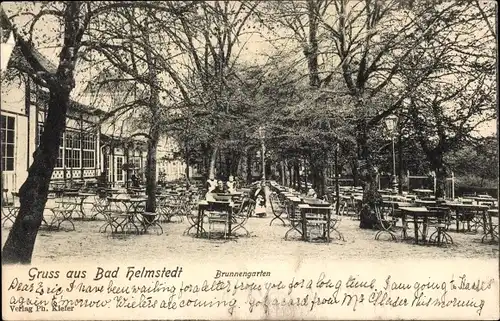 Gruss aus Bad Helmstedt Brunnengarten
Dear Eric, I have been waiting for a letter from you for a long time. I am going to
again tomorrow. Wipers are coming, got a card from Mr this morning
Verlag Ph. Kiefer